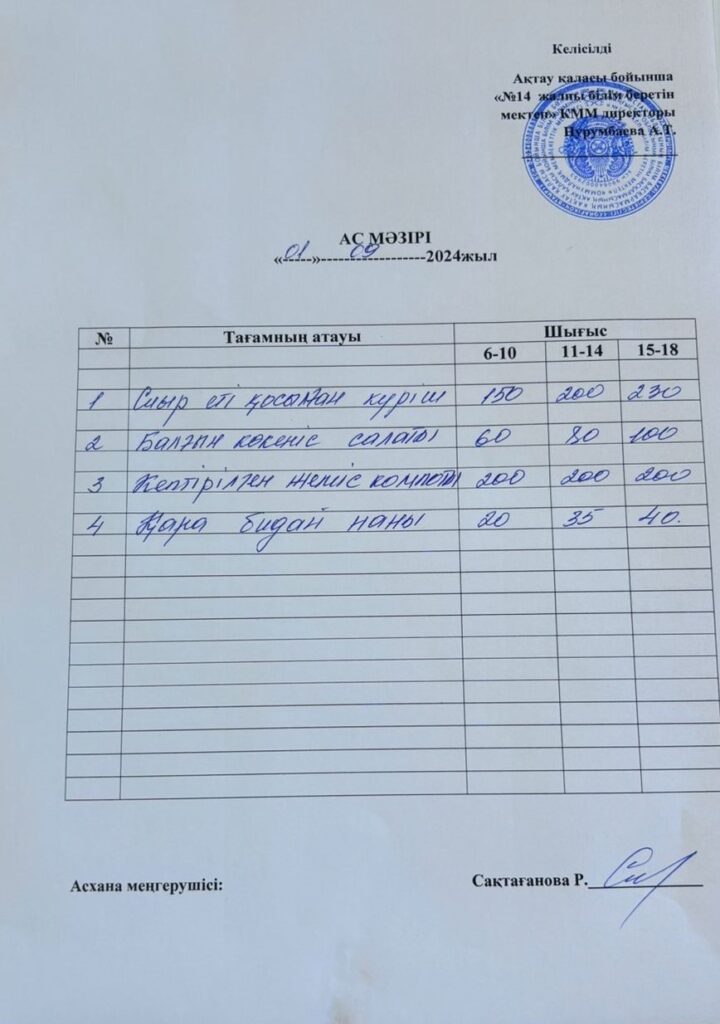 Келісілді
Ақтау қаласы бойынша
«№14 жалпы білім беретін
мектеп» КММ директоры
Нурумбаева А.Т.
АС МӘЗІРІ
«--01--»------09------------2024жыл
№ Тағамның атауы Шығыс
6-10 11-14 15-18
1 Сиыр еті қосылған күріш 150 200 230
2 Балғын көкөніс салаты 60 80 100
3 Кептірілген жеміс компоты 200 200 200
4 Қара бидай наны 20 35 40.
Асхана меңгерушісі: Сақтағанова Р.